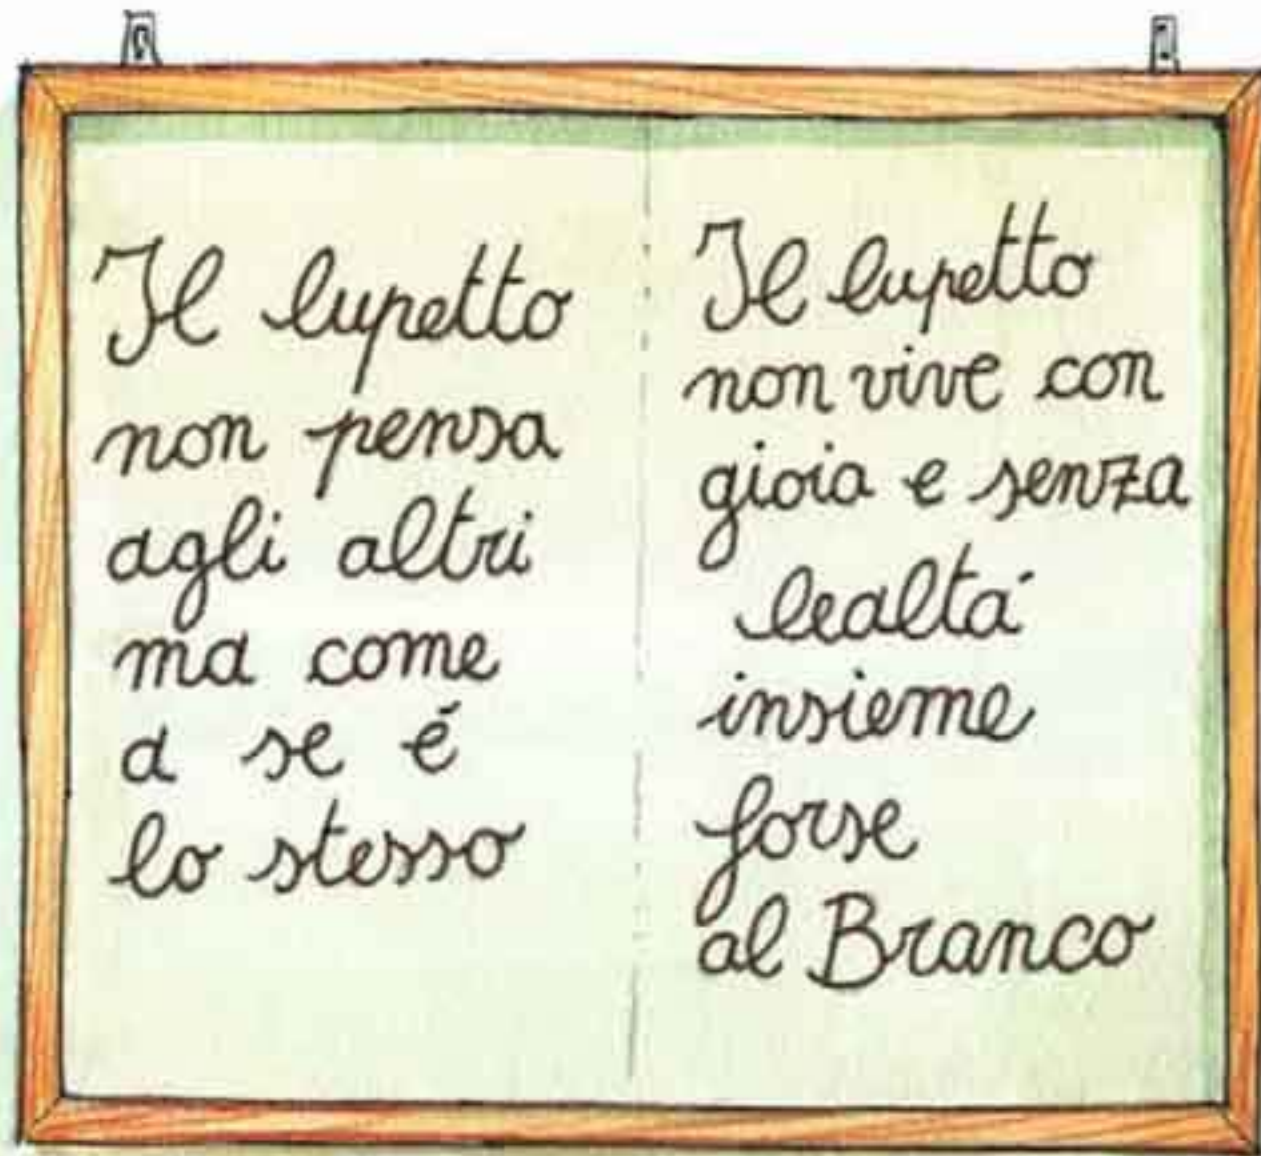 Il lupetto
non pensa
agli altri
ma come
a se é
lo stesso
Il lupetto
non vive con
gioia e senza
lealtá
insieme
forse
al Branco